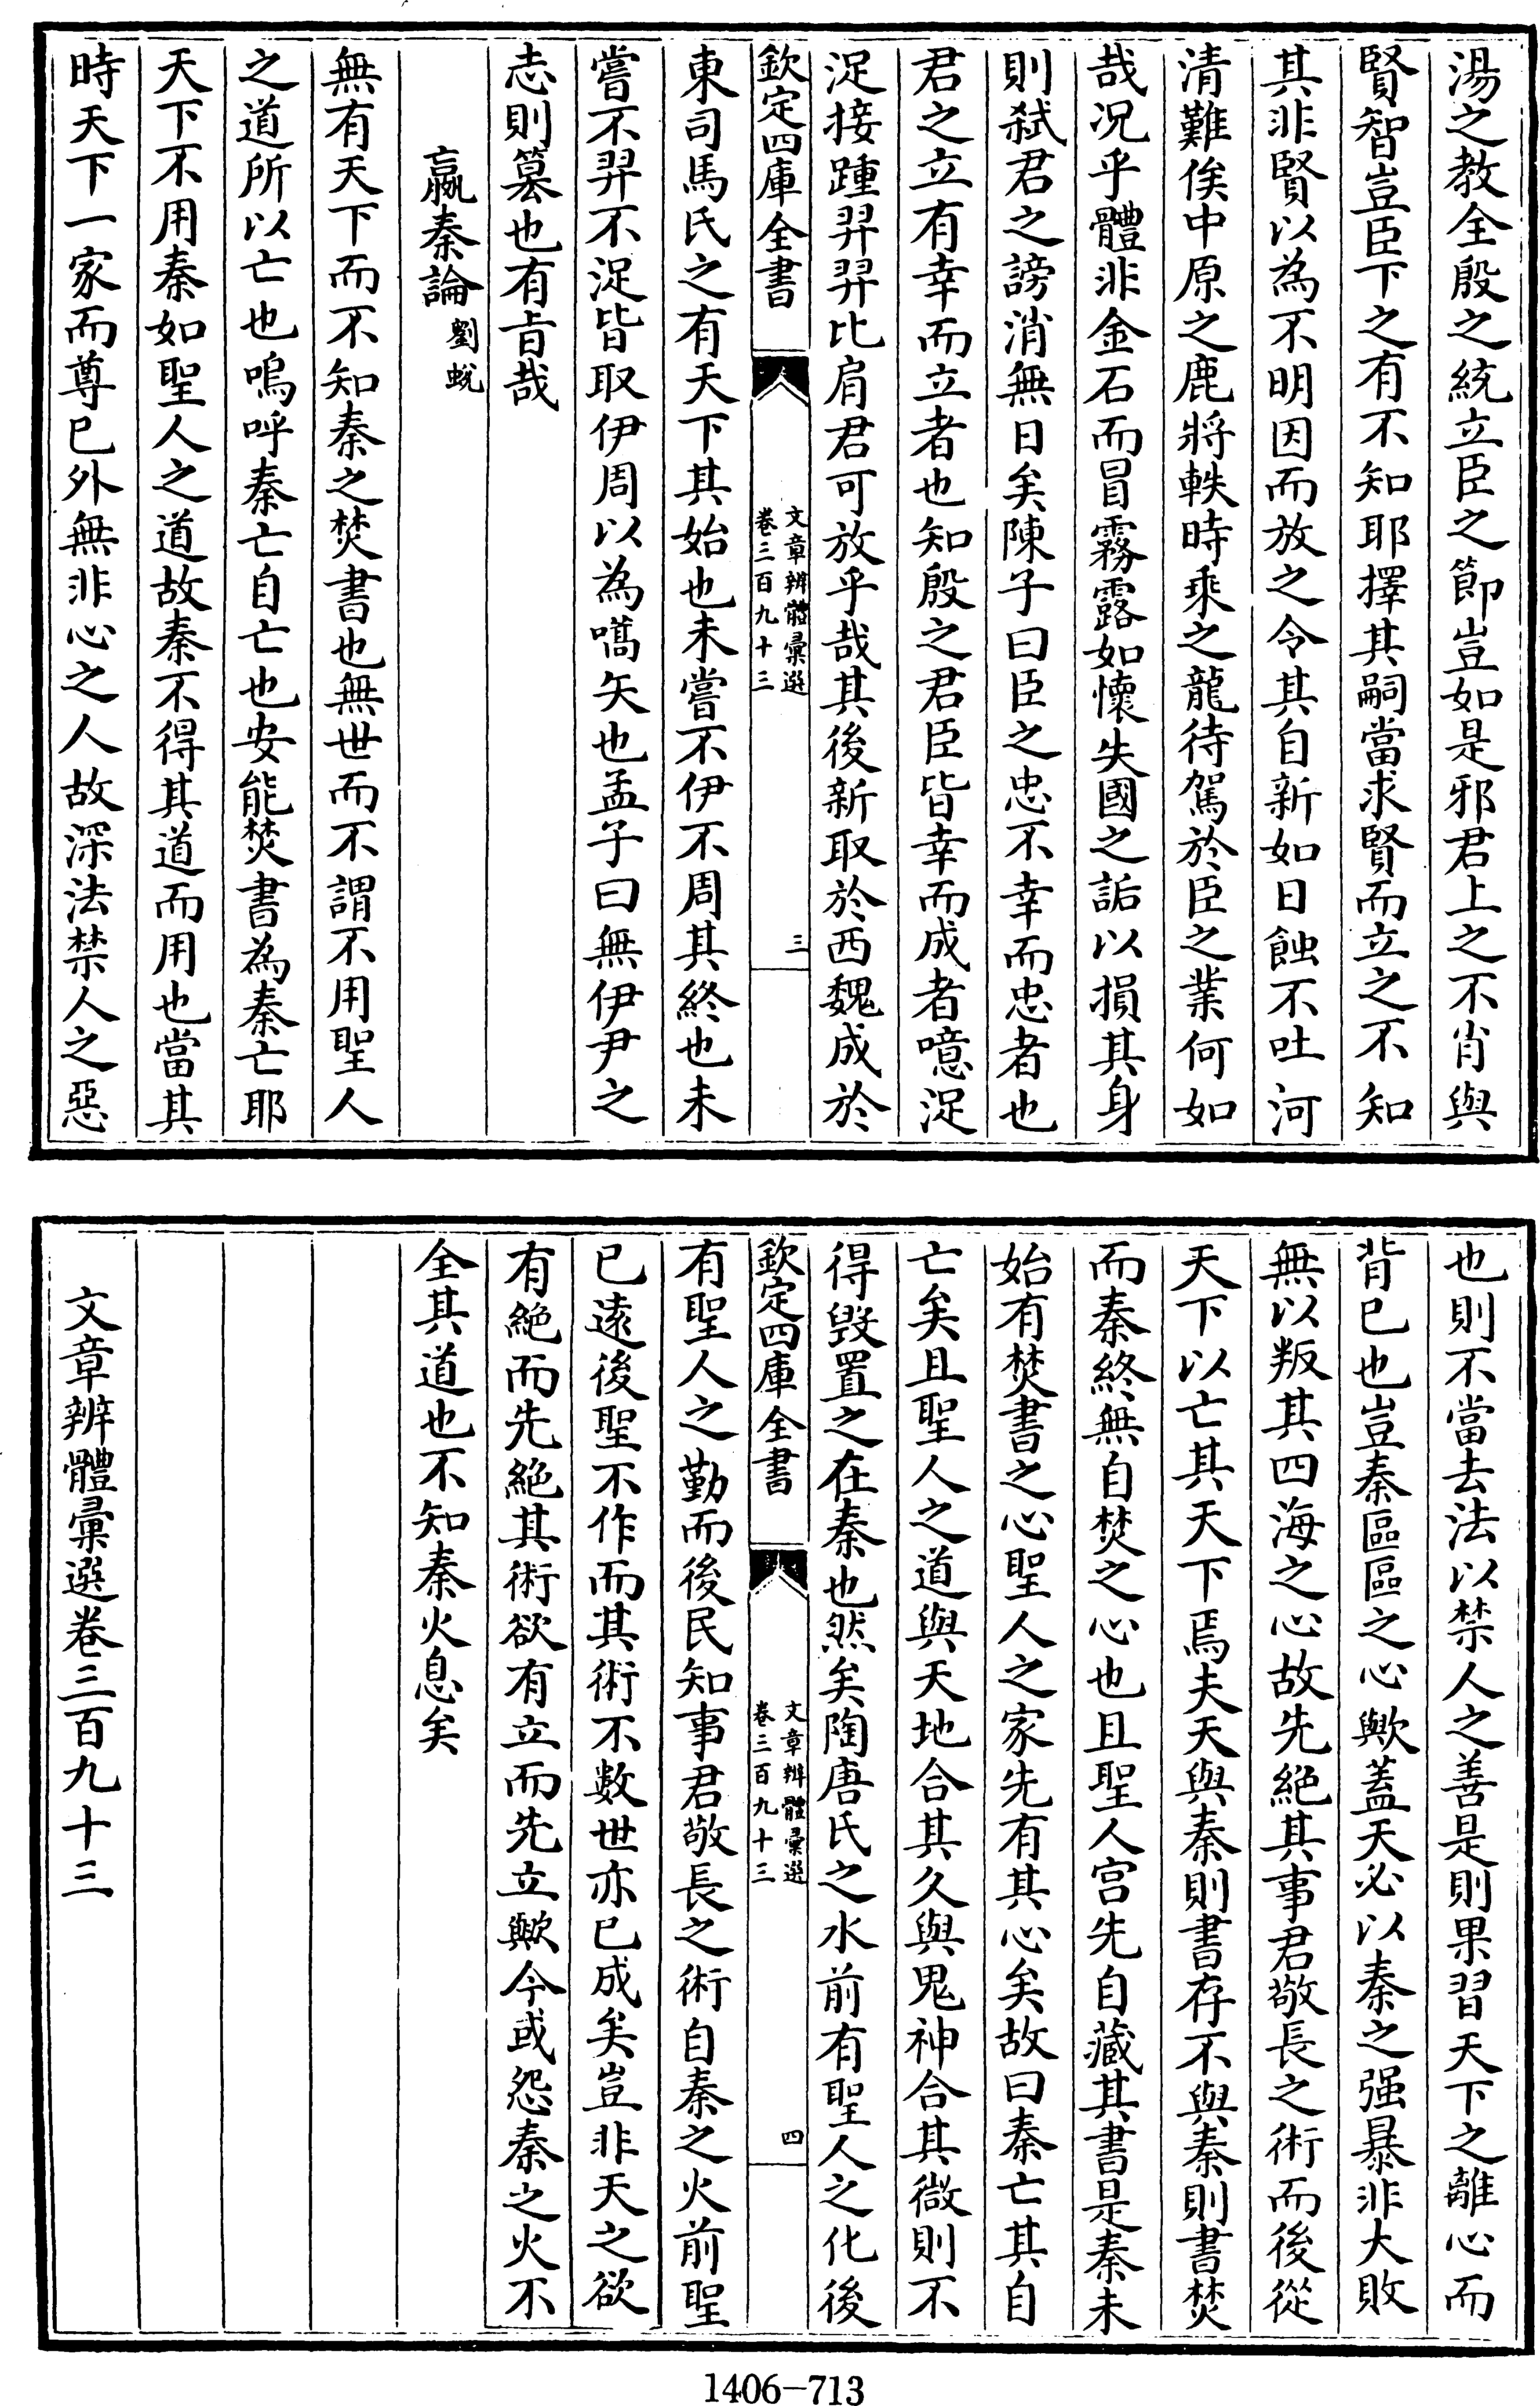 湯之教全殷之統立臣之節豈如是邪君上之不肖與
賢智豈臣下之有不知耶擇其嗣當求賢而立之不知
其非賢以為不明因而放之令其自新如日蝕不吐河
清難俟中原之鹿將軼時乘之龍待駕於臣之業何如
哉况乎體非金石而冒霧露如懷失國之詬以損其身
則弑君之謗消無日矣陳子曰臣之忠不幸而忠者也
君之立有幸而立者也知殷之君臣皆幸而成者噫浞
浞接踵羿羿比肩君可放乎哉其後新取於西魏成於
欽定四庫全書
文章辨體彚選
卷三百九十三
三
東司馬氏之有天下其始也未嘗不伊不周其終也未
嘗不羿不浞皆取伊周以為嚆矢也孟子曰無伊尹之
志則簒也有旨哉
嬴秦論 劉蛻
無有天下而不知秦之焚書也無世而不謂不用聖人
之道所以亡也嗚呼秦亡自亡也安能焚書為秦亡耶
天下不用秦如聖人之道故秦不得其道而用也當其
時天下一家而尊已外無非心之人故深法禁人之惡
也則不當去法以禁人之善是則果習天下之離心而
背已也豈秦區區之心歟蓋天必以秦之强暴非大敗
無以叛其四海之心故先絕其事君敬長之術而後從
天下以亡其天下焉夫天與秦則書存不與秦則書焚
而秦終無自焚之心也且聖人宫先自藏其書是秦未
始有焚書之心聖人之家先有其心矣故曰秦亡其自
亡矣且聖人之道與天地合其久與鬼神合其微則不
得毀置之在秦也然矣陶唐氏之水前有聖人之化後
欽定四庫全書
文章辨體彚選
卷三百九十三
四
有聖人之勤而後民知事君敬長之術自秦之火前聖
已遠後聖不作而其術不數世亦已成矣豈非天之欲
有絕而先絕其術欲有立而先立歟今或怨秦之火不
全其道也不知秦火息矣
文章辨體彚選卷三百九十三
1406-713